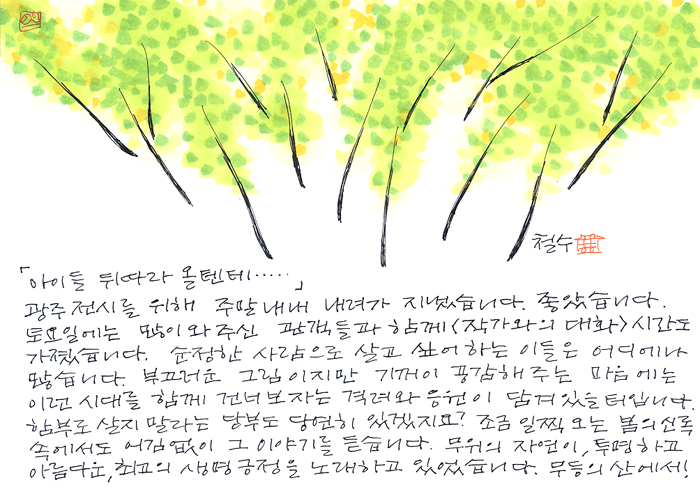 철수
「아이들 뒤따라 올텐데……」
광주전시를 위해 주말내내 내려가 지냈습니다. 좋았습니다.
토요일에는 많이 와주신 관객들과 함께 〈작가와의 대화〉 시간도
가졌습니다. 순정한 사람으로 살고 싶어하는 이들은 어디에나
많습니다. 부끄러운 그림이지만 기꺼이 공감해주는 마음에는
이런 시대를 함께 건너보자는 격려와 응원이 담겨있을 터입니다.
함부로 살지 말라는 당부도 당연히 있겠지요? 조금 일찍 오는 봄의 신록
속에서도 어김없이 그 이야기를 듣습니다. 무위의 자연이, 투명하고
아름다운, 최고의 생명긍정을 노래하고 있었습니다. 무등의 산에서!